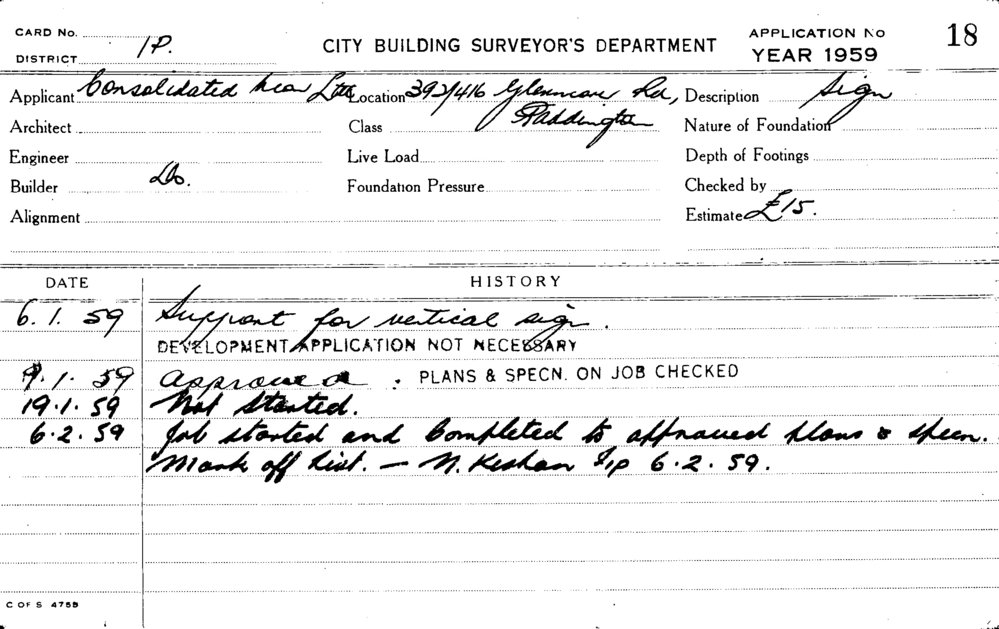 CARD No. 1P. CITY BUILDING SURVEYOR'S DEPARTMENT APPLICATION No 18
DISTRICT YEAR 1959
Applicant Consolidated Neon Ltd Location 392/416 Glenmore Rd, Description Sign
Architect Class Paddington Nature of Foundation
Engineer Live Load Depth of Footings
Builder Do. Foundation Pressure Checked by
Alignment Estimate £15.
DATE HISTORY
6. 1. 59 Support for vertical sign.
DEVELOPMENT APPLICATION NOT NECESSARY
9. 1. 59 Approved. PLANS & SPECN. ON JOB CHECKED
19.1.59 Not Started.
6.2.59 Job started and Completed to approved plans & specn.
Mark off List. — 6.2.59.
C OF S 475B